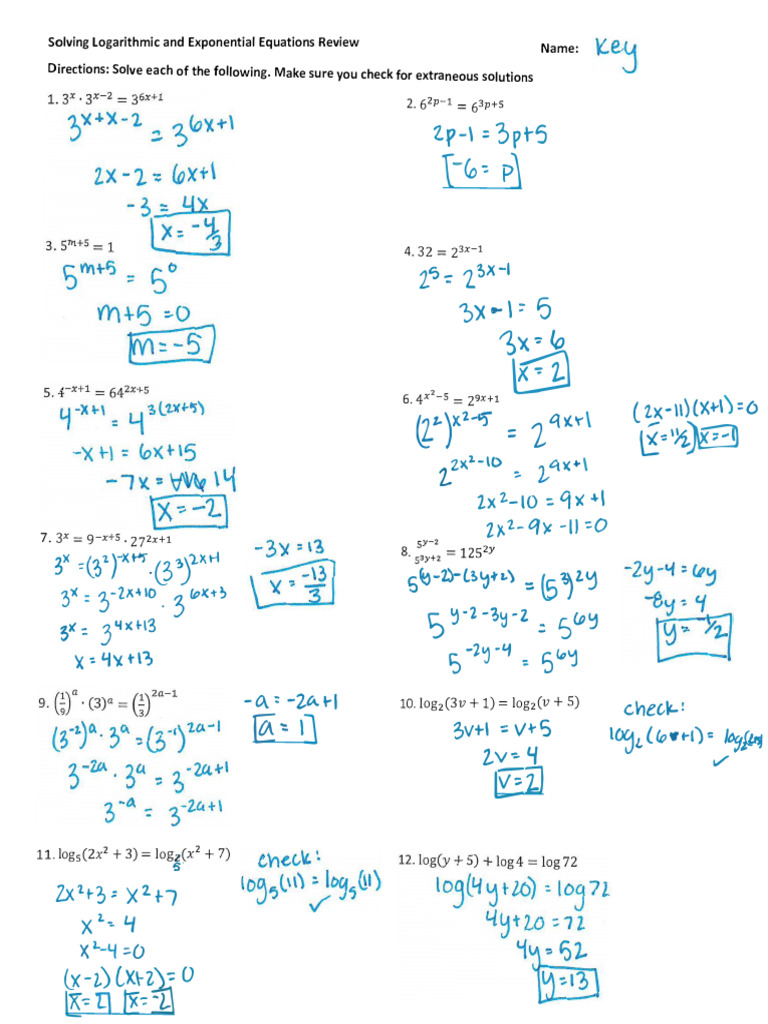 Solving Logarithmic and Exponential Equations Review
Name: Key
Directions: Solve each of the following. Make sure you check for extraneous solutions
1. 3^x · 3^{x−2} = 3^{6x+1}
3^{x+x-2} = 3^{6x+1}
2x-2 = 6x+1
-3 = 4x
x = -4/3
2. 6^{2p−1} = 6^{3p+5}
2p-1 = 3p+5
-6 = p
3. 5^{m+5} = 1
5^{m+5} = 5^0
m+5 = 0
m = -5
4. 32 = 2^{3x−1}
2^5 = 2^{3x-1}
3x-1 = 5
3x = 6
x = 2
5. 4^{−x+1} = 64^{2x+5}
4^{-x+1} = 4^{3(2x+5)}
-x+1 = 6x+15
-7x = 14
x = -2
6. 4^{x^2−5} = 2^{9x+1}
(2^2)^{x^2-5} = 2^{9x+1}
2^{2x^2-10} = 2^{9x+1}
2x^2-10 = 9x+1
2x^2-9x-11 = 0
(2x-11)(x+1) = 0
x = 11/2 x = -1
7. 3^x = 9^{−x+5} · 27^{2x+1}
3^x = (3^2)^{-x+5} · (3^3)^{2x+1}
3^x = 3^{-2x+10} · 3^{6x+3}
3^x = 3^{4x+13}
x = 4x+13
-3x = 13
x = -13/3
8. 5^{y−2}/5^{3y+2} = 125^{2y}
5^{(y-2)-(3y+2)} = (5^3)^{2y}
5^{y-2-3y-2} = 5^{6y}
5^{-2y-4} = 5^{6y}
-2y-4 = 6y
-8y = 4
y = -1/2
9. (1/9)^a · (3)^a = (1/3)^{2a−1}
(3^{-2})^a · 3^a = (3^{-1})^{2a-1}
3^{-2a} · 3^a = 3^{-2a+1}
3^{-a} = 3^{-2a+1}
-a = -2a+1
a = 1
10. log_2(3v + 1) = log_2(v + 5)
3v+1 = v+5
2v = 4
v = 2
check:
log_2(6+1) = log_2
11. log_5(2x^2 + 3) = log_5(x^2 + 7)
2x^2+3 = x^2+7
x^2 = 4
x^2-4 = 0
(x-2)(x+2) = 0
x = 2 x = -2
check:
log_5(11) = log_5(11)
12. log(y + 5) + log 4 = log 72
log(4y+20) = log72
4y+20 = 72
4y = 52
y = 13